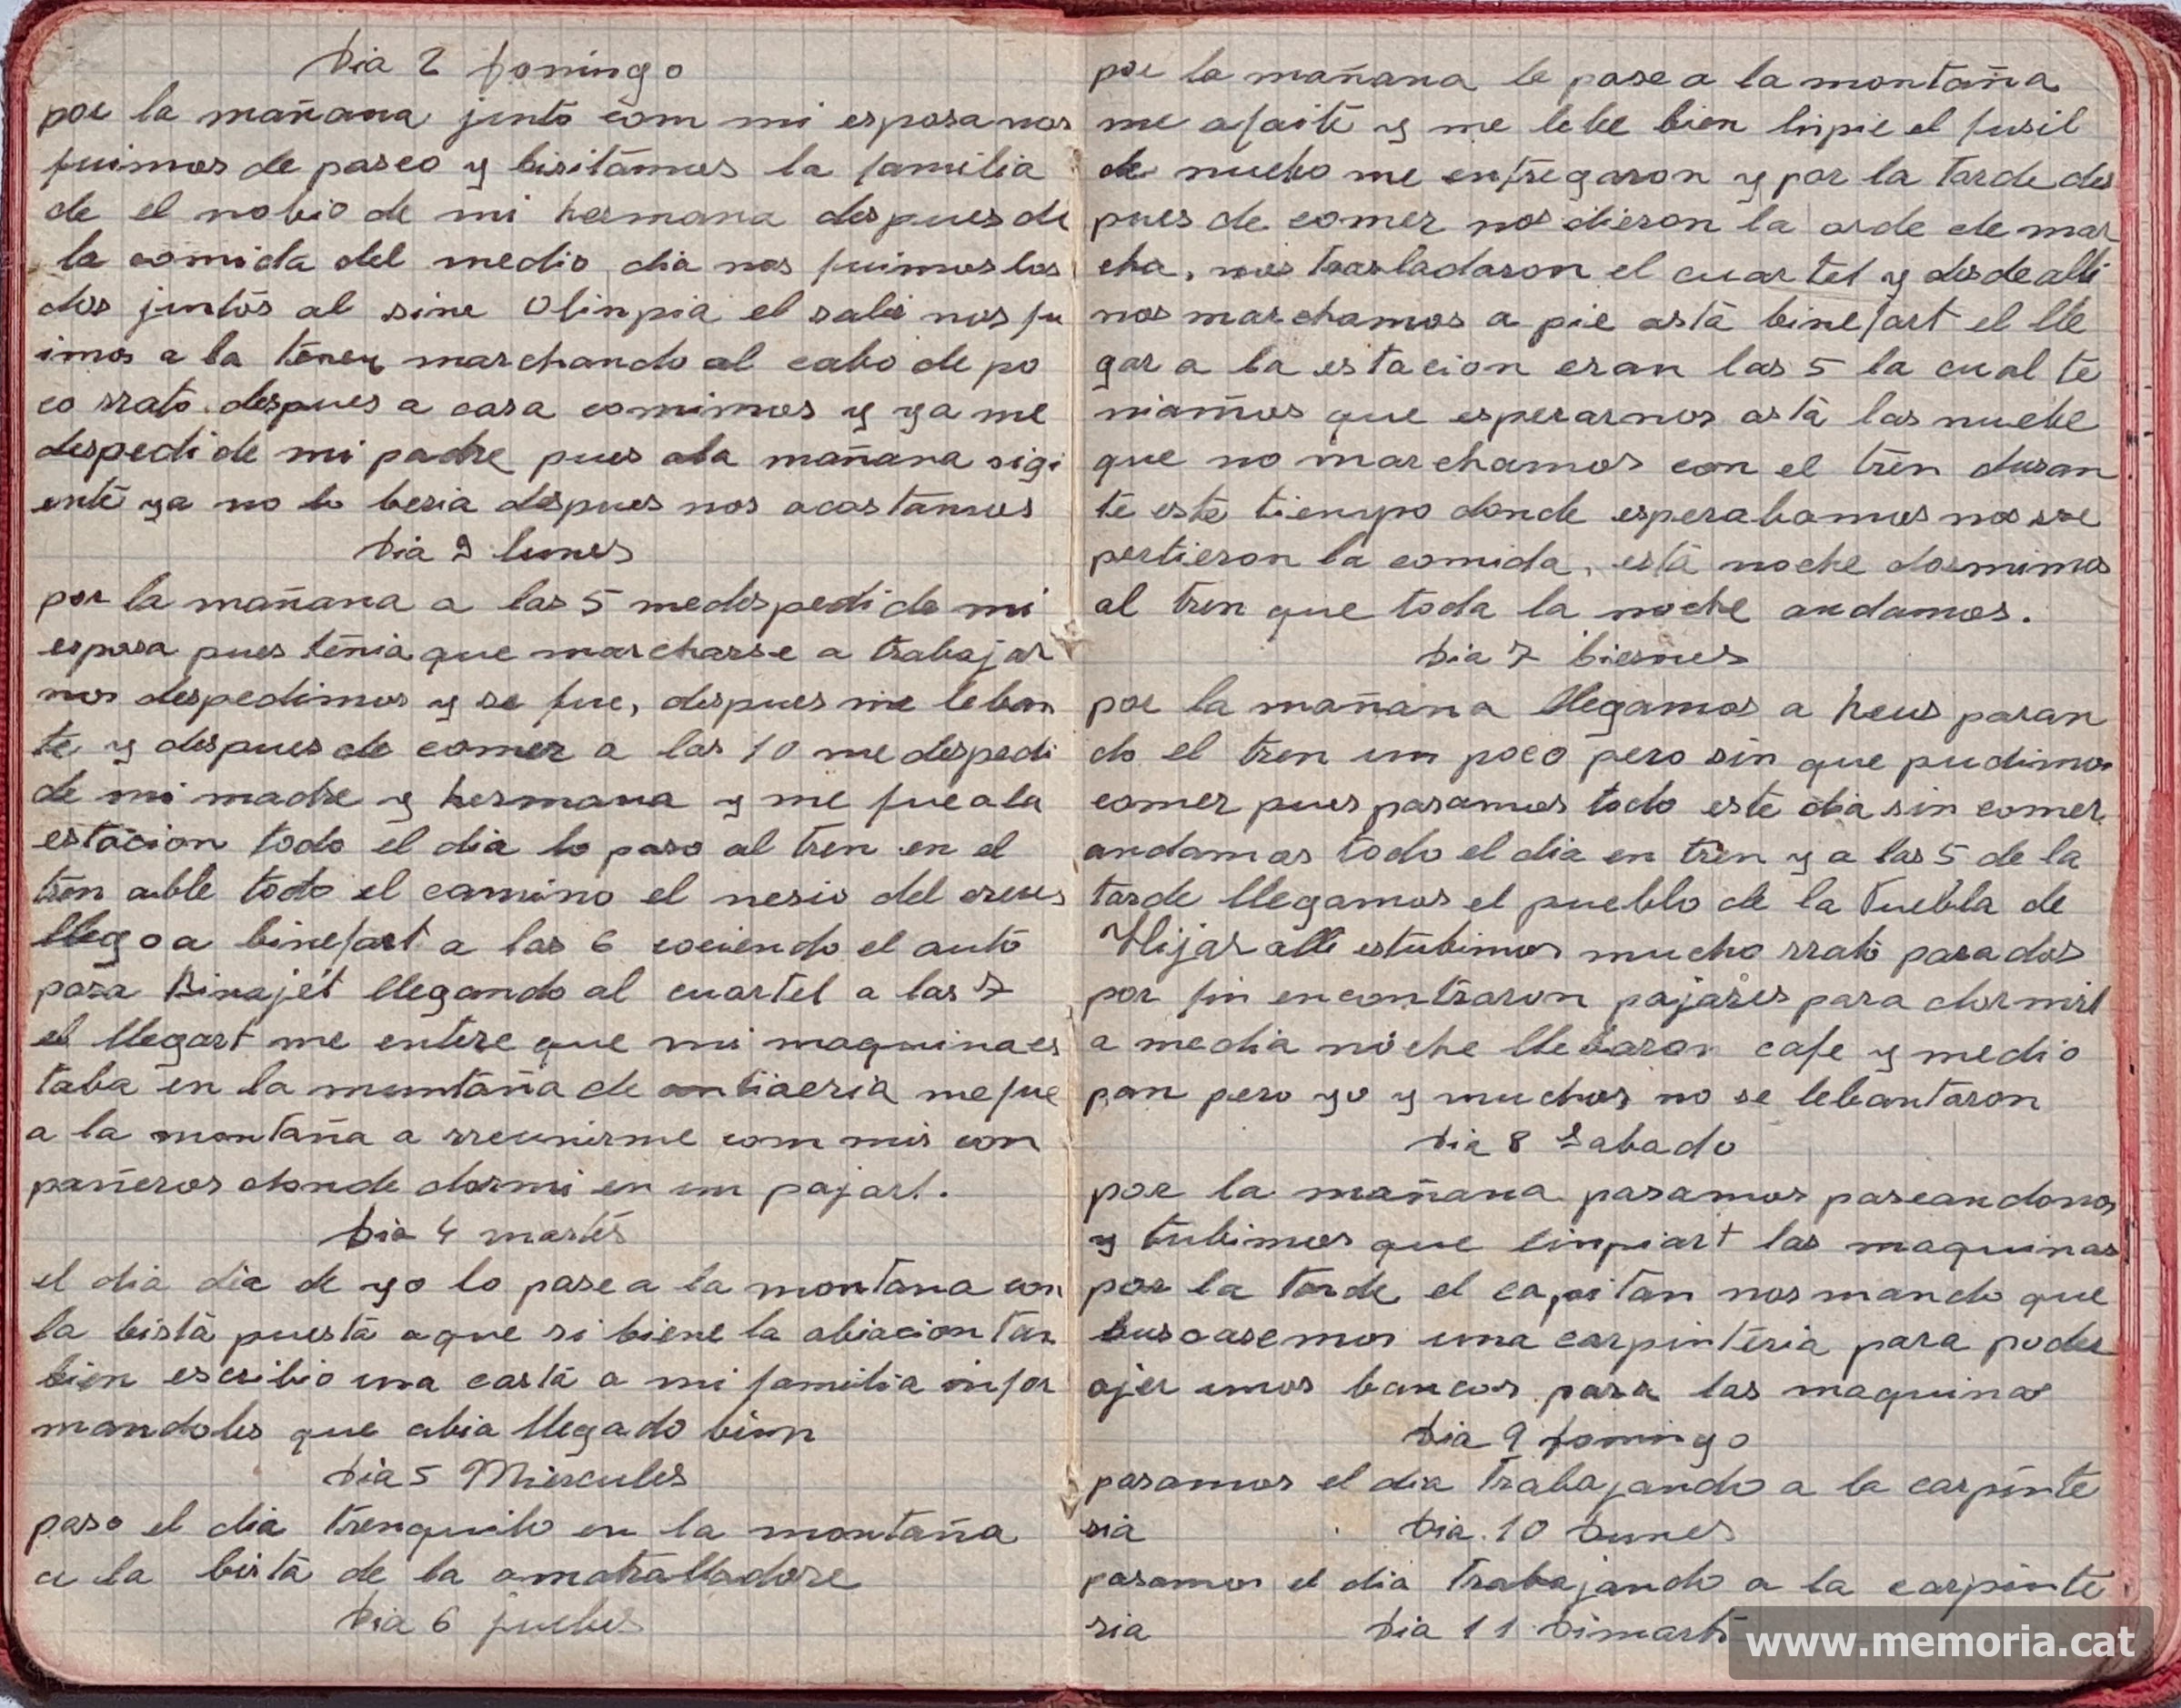 Dia 2 Domingo
por la mañana junto com mi esposa nos
fuimos de paseo y bisitamos la familia
de el nobio de mi hermana despues de
la comida del medio dia nos fuimos los
dos juntos al sine Olinpia el salir nos fu
imos a la marchando al cabo de po
co rrato despues a casa comimos y ya me
despedi de mi padre pues ala mañana sigi
ente ya no lo beria despues nos acostamos
Dia 3 lunes
por la mañana a las 5 medespedi de mi
esposa pues tenia que marcharse a trabajar
nos despedimos y se fue, despues me leban
te y despues de comer a las 10 me despedi
de mi madre y hermana y me fue ala
estacion todo el dia lo paso al tren en el
tren able todo el camino el nesio del oreues
llego a binefart a las 6 cociendo el auto
para Binajet llegando al cuartel a las 7
el llegart me entere que mi maquina es
taba en la muntaña de antiaeria me fue
a la montaña a rreunirme com mis con
pañeros donde dormi en un pajart.
Dia 4 martes
el dia dia de yo lo pase a la montana con
la bista puesta aque si biene la abiacion tan
bien escribio una carta a mi familia infor
mandoles que abia llegado bien
Dia 5 Miercules
paso el dia trenquilo en la montaña
a la bista de la amatralladore
Dia 6 juebes
por la mañana le pase a la montaña
me afaite y me lebe bien linpie el fusil
de nuebo me entregaron y por la tarde des
pues de comer nos dieron la orde de mar
cha, nos trasladaron el cuartel y desde alli
nos marchamos a pie asta binefart el lle
gar a la estacion eran las 5 la cual te
niamos que esperarnos asta las nuebe
que no marchamos con el tren duran
te este tienpo donde esperabamos nos rre
pertieron la comida, esta noche dormimos
al tren que toda la noche andamos.
Dia 7 biernes
por la mañana llegamos a Reus paran
do el tren um poco pero sin que pudimos
comer pues pasamos todo este dia sin comer
andamos todo el dia en tren y a las 5 de la
tarde llegamos el pueblo de la Puebla de
Hijar alli estubimos mucho rrato parados
por fin encontraron pajares para dormirt
a media noche llebaron cafe y medio
pan pero yo y muchos no se lebantaron
Dia 8 Sabado
por la mañana pasamos paseandonos
y tubimos que linpiart las maquinas
por la tarde el capitan nos mando que
buscasemos una carpinteria para poder
ajer unos bancos para las maquinas
Dia 9 Domingo
pasamos el dia trabajando a la carpinte
ria Dia 10 Lunes
pasamos el dia trabajando a la carpinte
ria Dia 11 Dimarts
www.memoria.cat